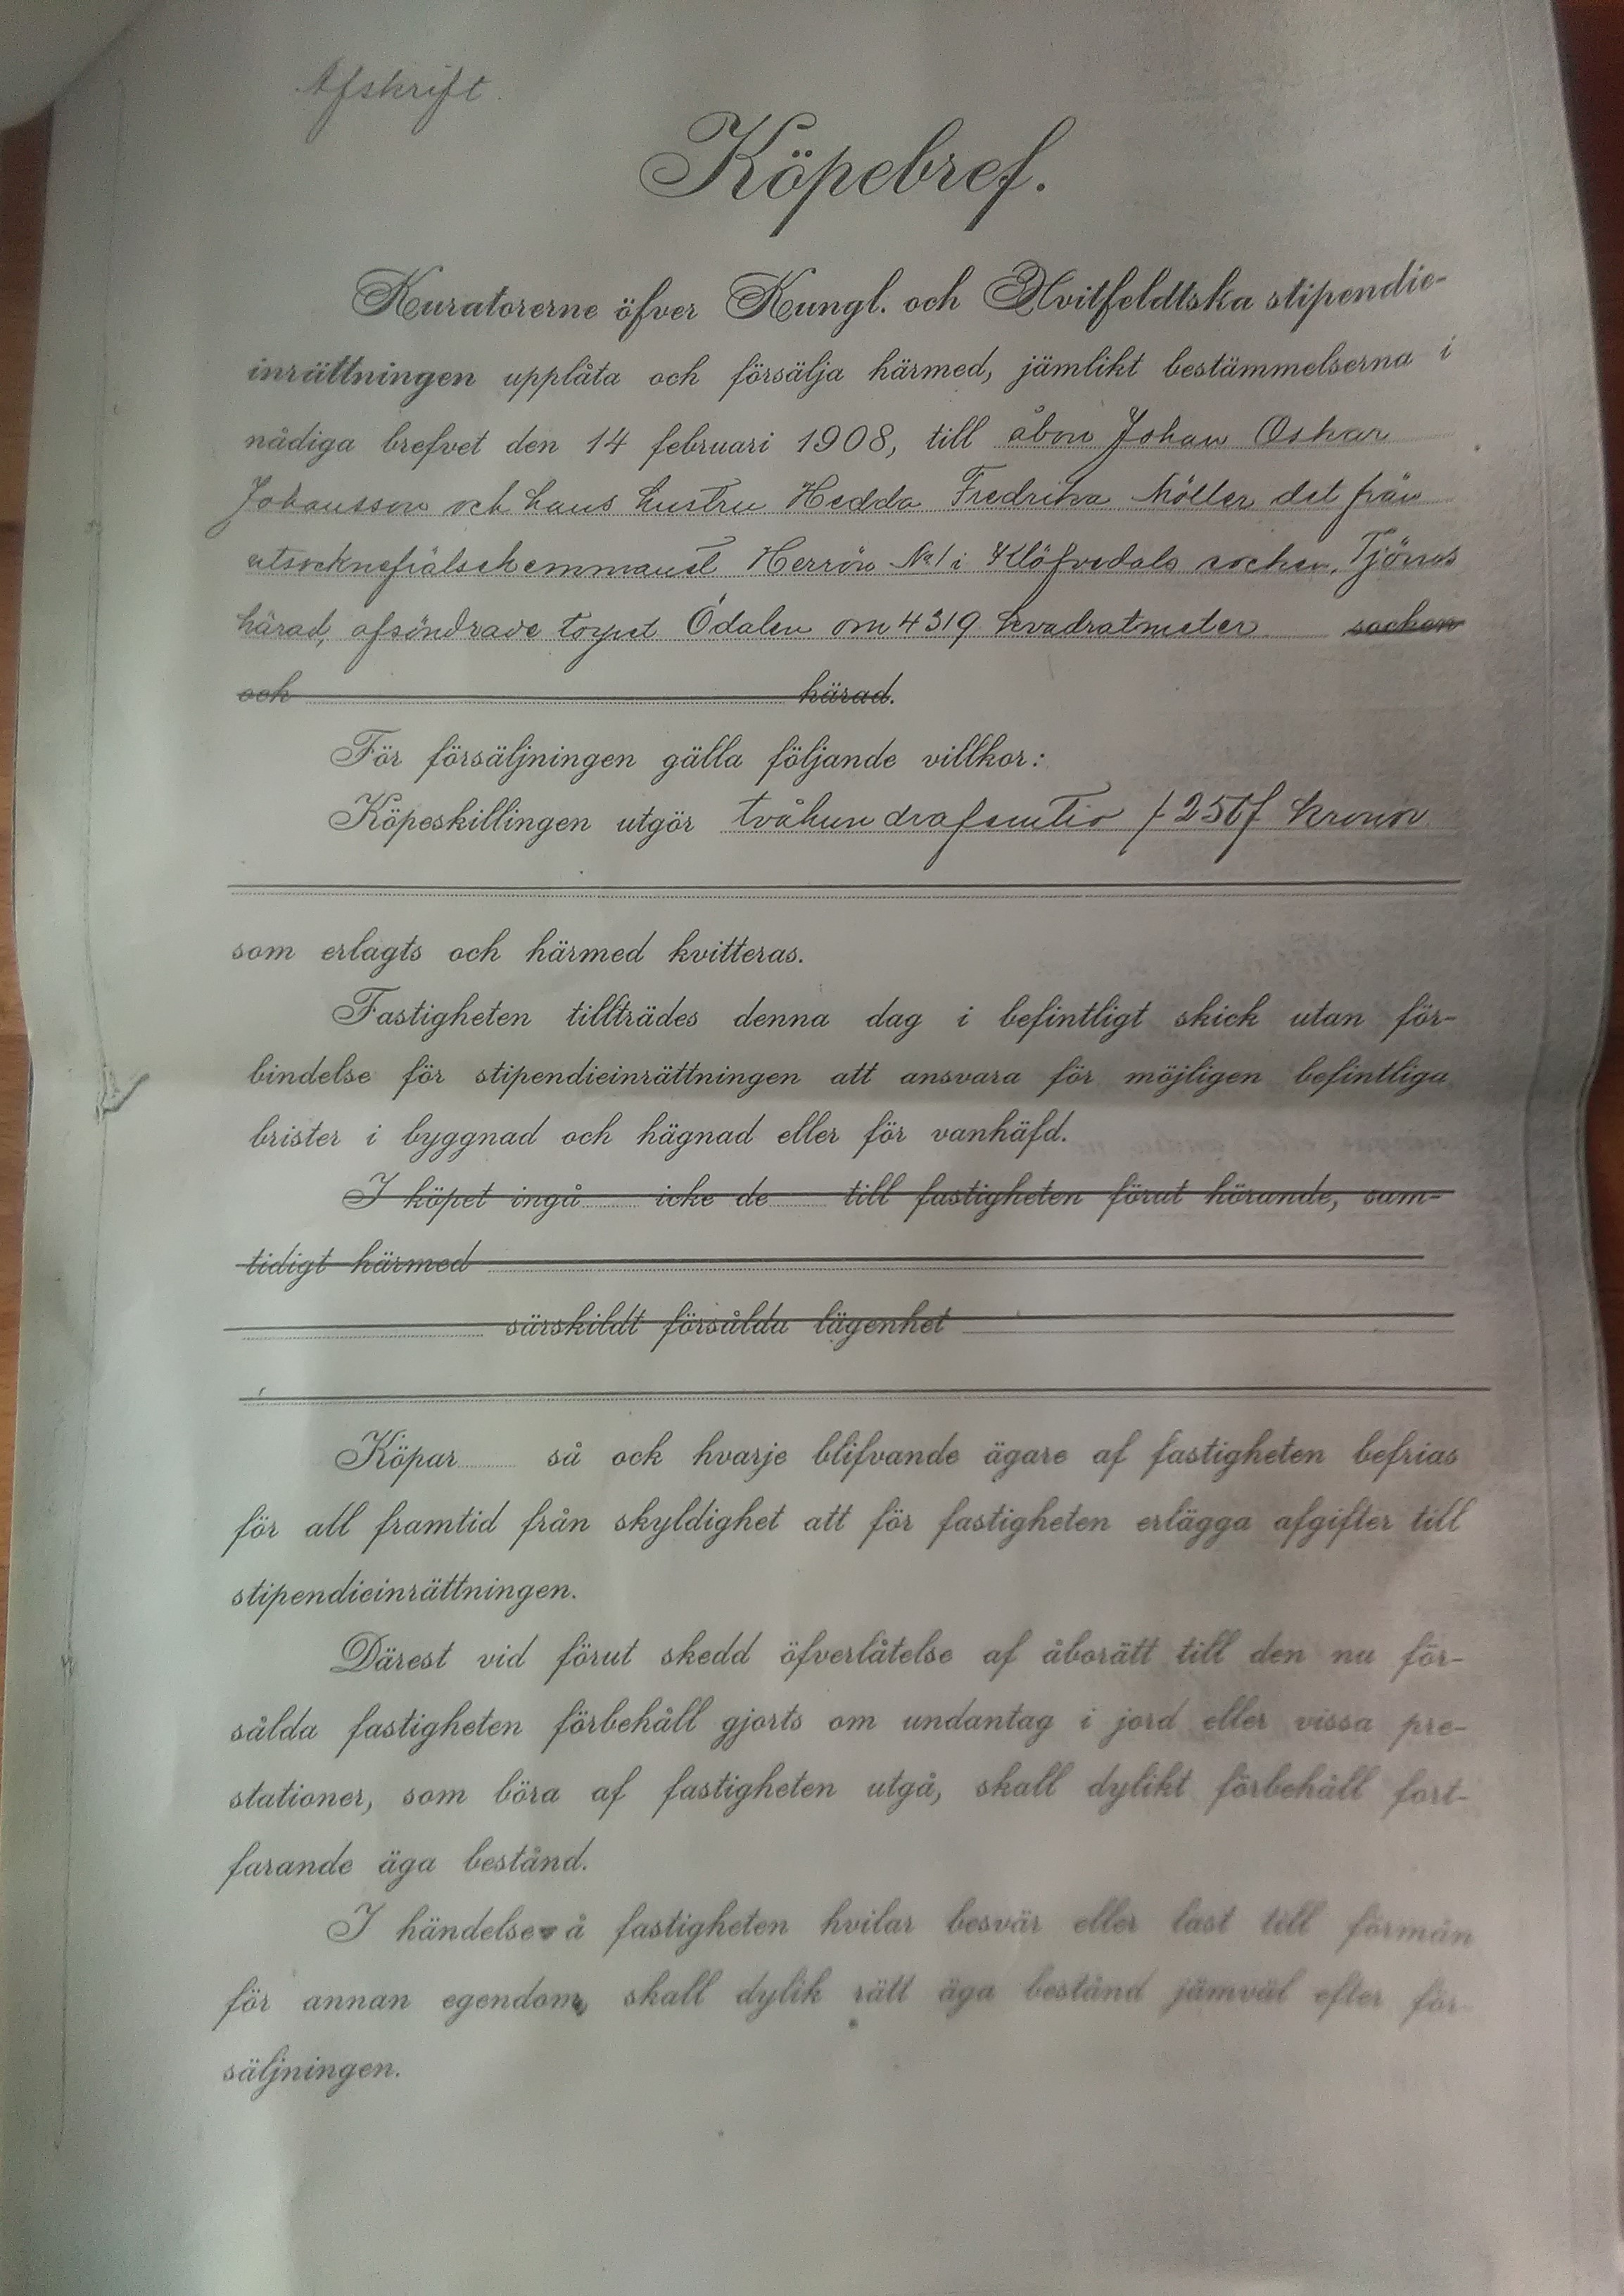 Afskrift.
Köpebref.
Kuratorerne öfver Kungl. och Hvitfeldtska stipendie-
inrättningen upplåta och försälja härmed, jämlikt bestämmelserna i
nådiga brefvet den 14 februari 1908, till åbon Johan Oskar
Johansson och hans hustru Hedda Fredrika Möller det från
utsocknefrälsehemmanet Herrön No 1 i Klöfvedals socken, Tjörns
härad, afsöndrade torpet Ödalen om 4319 kvadratmeter socken
och härad.
För försäljningen gälla följande villkor:
Köpeskillingen utgör tvåhundrafemtio /250/ kronor
som erlagts och härmed kvitteras.
Fastigheten tillträdes denna dag i befintligt skick utan för-
bindelse för stipendieinrättningen att ansvara för möjligen befintliga
brister i byggnad och hägnad eller för vanhäfd.
I köpet ingå icke de till fastigheten förut hörande, sam-
tidigt härmed
särskildt försålda lägenhet
Köpar så ock hvarje blifvande ägare af fastigheten befrias
för all framtid från skyldighet att för fastigheten erlägga afgifter till
stipendieinrättningen.
Därest vid förut skedd öfverlåtelse af åborätt till den nu för-
sålda fastigheten förbehåll gjorts om undantag i jord eller vissa pre-
stationer, som böra af fastigheten utgå, skall dylikt förbehåll fort-
farande äga bestånd.
I händelse å fastigheten hvilar besvär eller last till förmån
för annan egendom, skall dylik rätt äga bestånd jämväl efter för-
säljningen.